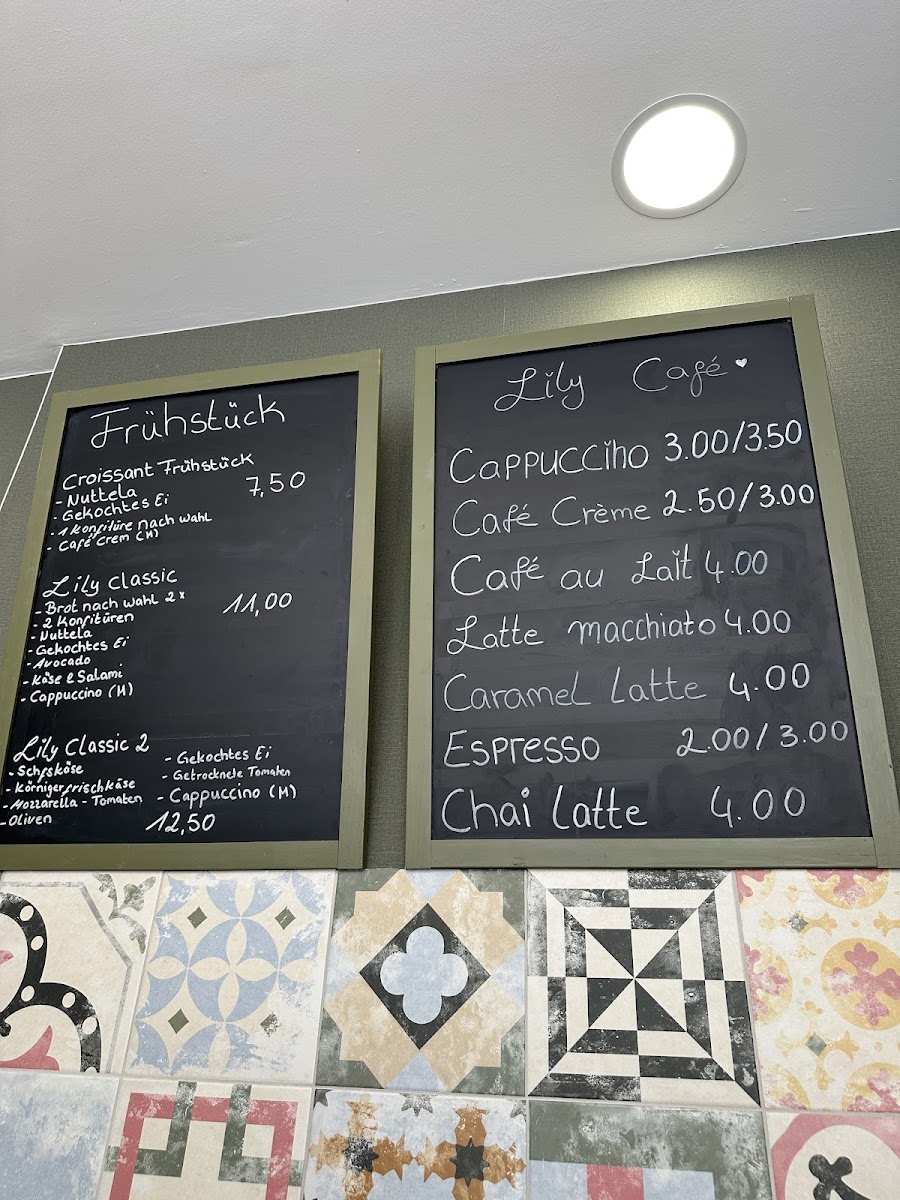 Frühstück
Croissant Frühstück
- Nuttela 7,50
- Gekochtes Ei
- 1 Konfitüre nach wahl
- Café Crem (M)
Lily Classic
- Brot nach wahl 2x 11,00
- 2 Konfitüren
- Nuttela
- Gekochtes Ei
- Avocado
- Käse & Salami
- Cappuccino (M)
Lily Classic 2
- Schfskäse
- Körnigerfrischkäse
- Mozzarella - Tomaten
- Oliven
- Gekochtes Ei
- Getrocknele Tomaten
- Cappuccino (M)
12,50
Lily Café
Cappuccino 3.00/3.50
Café Crème 2.50/3.00
Café au Lait 4.00
Latte macchiato 4.00
Caramel Latte 4.00
Espresso 2.00/3.00
Chai Latte 4.00